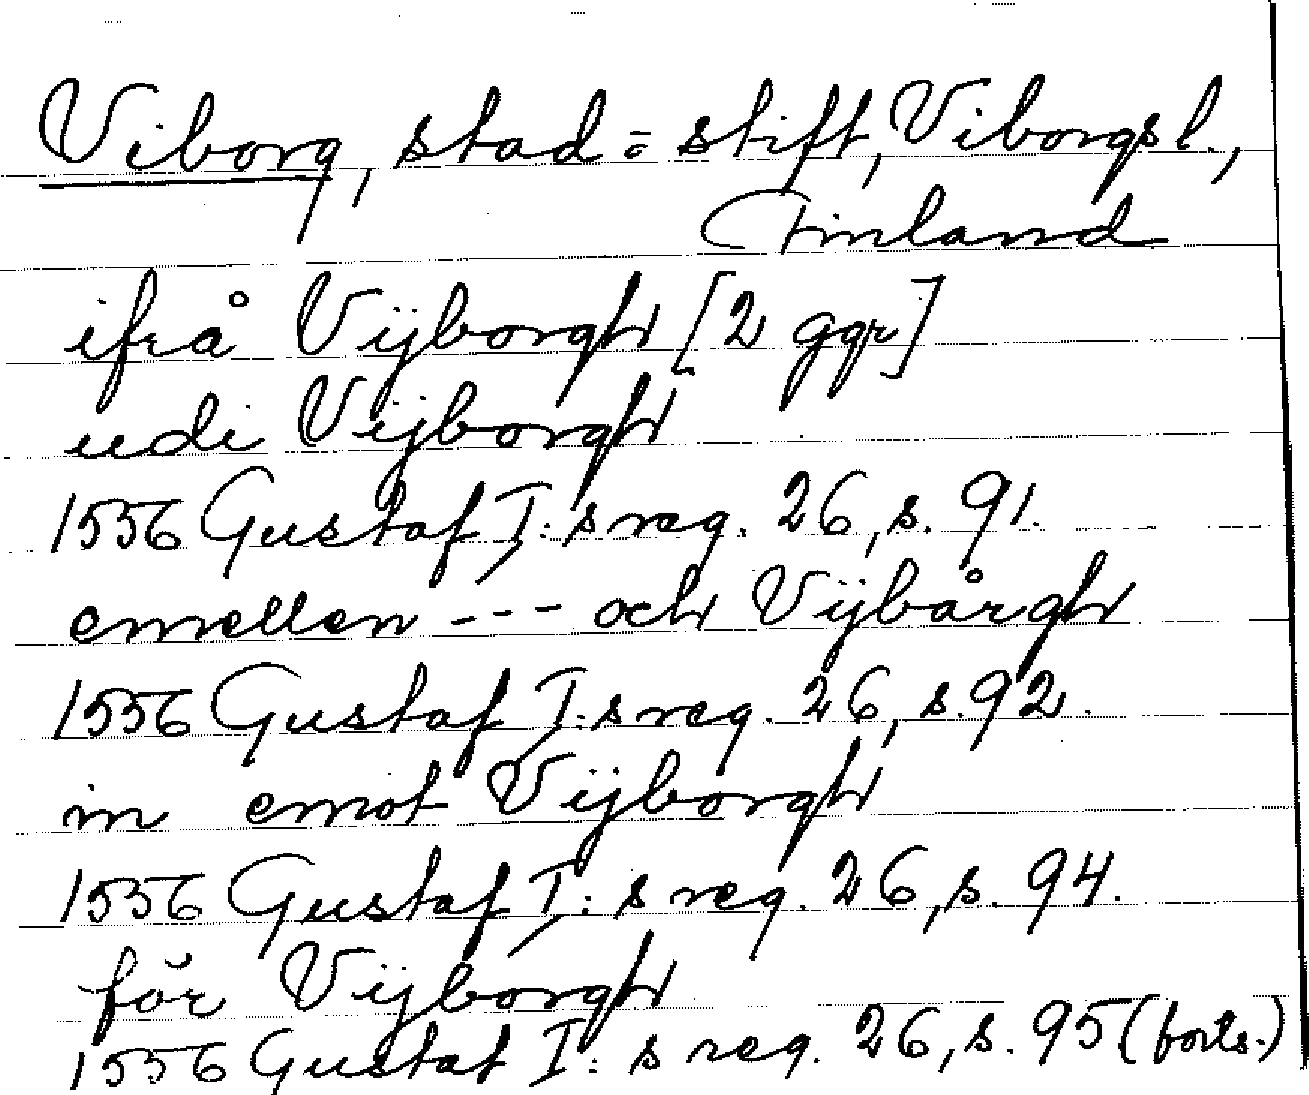 Viborg, stad = stift, Viborgs l.,
Finland
ifrå Vijborgh [2 ggr]
udi Vijborgh
1556 Gustaf I:s reg. 26, s. 91.
emellen --- och Vijbårgh
1556 Gustaf I:s reg. 26, s. 92.
in emot Vijborgh
1556 Gustaf I:s reg. 26, s. 94.
för Vijborgh
1556 Gustaf I:s reg. 26, s. 95 (forts.)